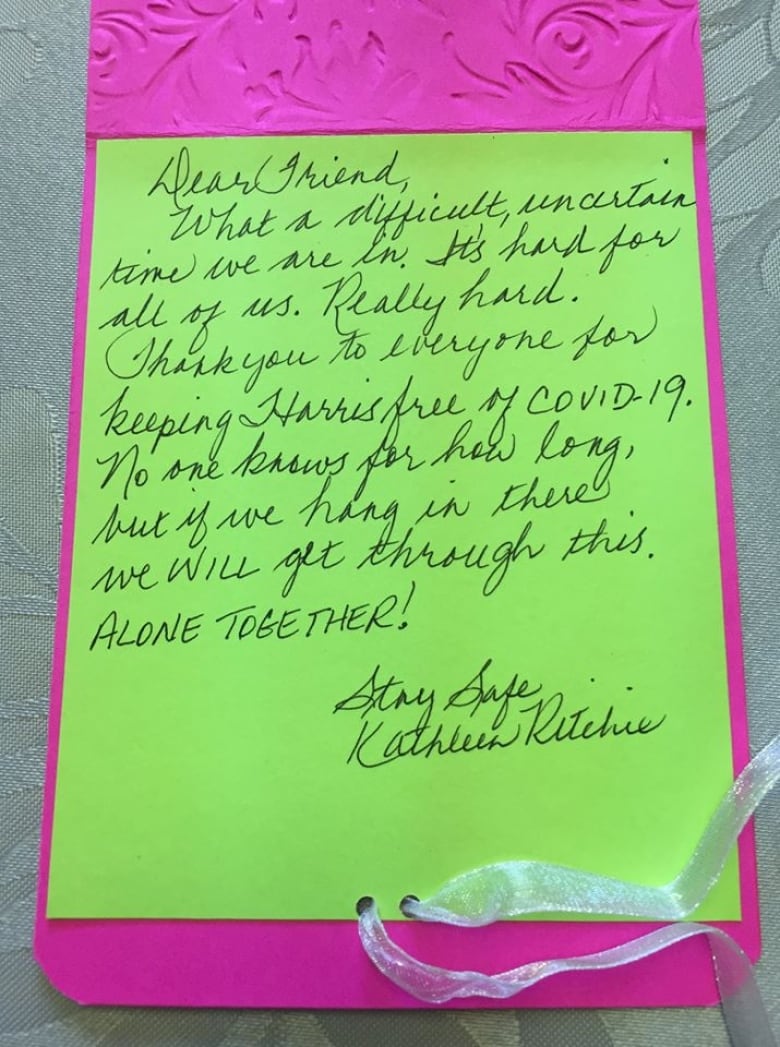 Dear Friend,
What a difficult, uncertain
time we are in. It's hard for
all of us. Really hard.
Thank you to everyone for
keeping Harris free of COVID-19.
No one knows for how long,
but if we hang in there
we WILL get through this.
ALONE TOGETHER!
Stay Safe
Kathleen Ritchie